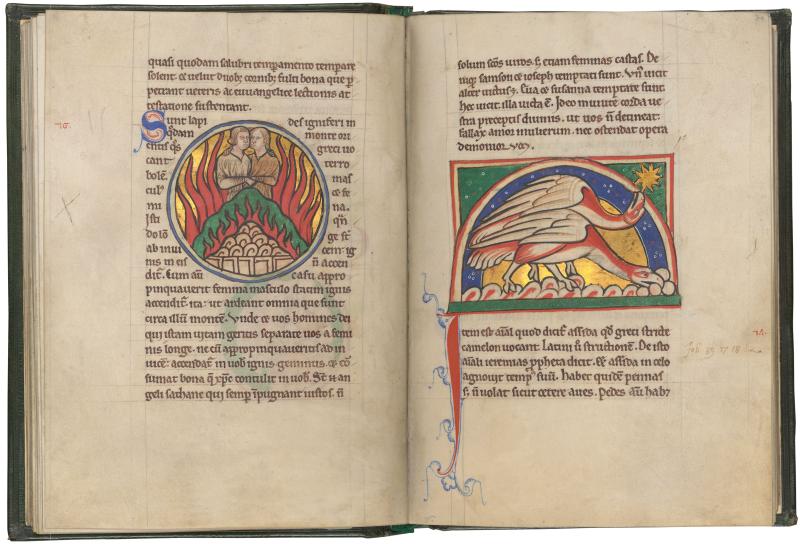 quasi quodam salubri temperamento temperare
solent. velut duob; cornib; fulti bona que
petrant veteris ac euuangelice lectionis at
testatione sustentant.
Sunt lapi des igniferi in
qdam monte ori
entis grece uo
cant terro
bolē mas
cul ce fe
ni na.
Isti
do lō ge st
ab inui cem ig
nis in eis ñ accen
dit̄. Cum aū casu appro
pinquauerit femina masculo statim ignis
accendit̄ ita: ut ardeant omnia que sunt
circa illū montē. Vnde ce uos homines dei
qui istam uitam geritis separate uos a femi
nis longe. ne cū appropinquaueritis ad in
uicē: accendat̄ in uob ignis geminus. ce cō
sumat bona q̄ xp̄c contulit in uob. St̄ an
geli sathane qui semp̄ īpugnant iustos. ñ
solum scōs uiros. s; etiam feminas castas. De
niq; samson ce ioseph temptati sunt. Vn̄ uicit
alter uictus. Eua ce susanna temptate sunt
hec uicit. illa uicta ē. Ideo munite corda ue
stra preceptis diuinis. ut uos ñ delineat:
fallax amor mulierum. nec ostendat opera
demonior
Item est aīal quod dicit̄ assida qd̄ greci stricte
camelon uocant. Latini structionē. De isto
aīali ieremias ꝓpheta dicit. Et assida in celo
agnouit temp suū. Habet quidem pennas
s; ñ uolat sicut cetere aues. Pedes aū hab